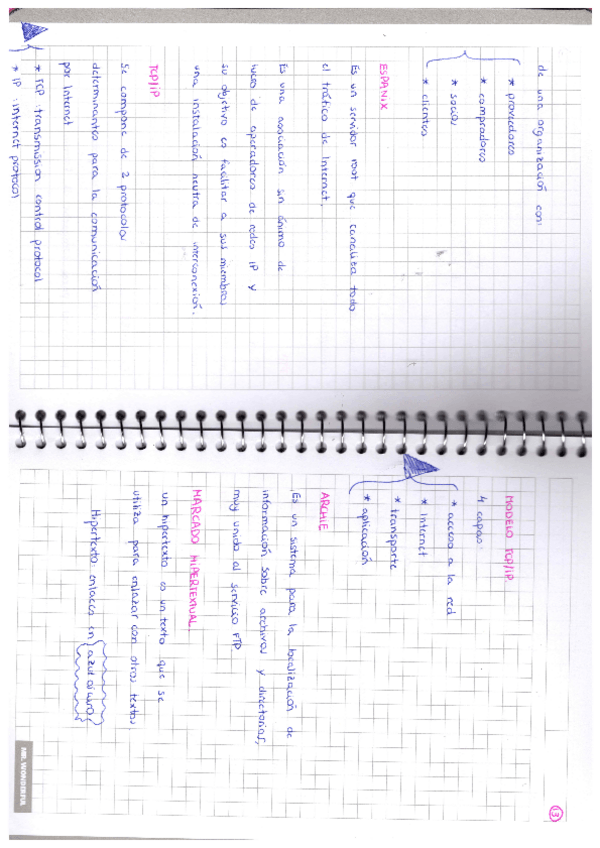 de una organización con:
* proveedores
* compradores
* socios
* clientes
ESPANIX
Es un servidor root que canaliza todo
el tráfico de Internet.
Es una asociación sin ánimo de
lucro de operadores de redes IP y
su objetivo es facilitar a sus miembros
una instalación neutra de interconexión.
TCP/IP
Se compone de 2 protocolos
determinantes para la comunicación
por Internet
* TCP: transmission control protocol
* IP: internet protocol
13
MODELO TCP/IP
4 capas:
* acceso a la red
* Internet
* transporte
* aplicación
ARCHIE
Es un sistema para la localización de
información sobre archivos y directorios,
muy unido al servicio FTP.
MARCADO HIPERTEXTUAL
Un hipertexto es un texto que se
utiliza para enlazar con otros textos
Hipertexto: enlaces en azul oscuro
MR. WONDERFUL